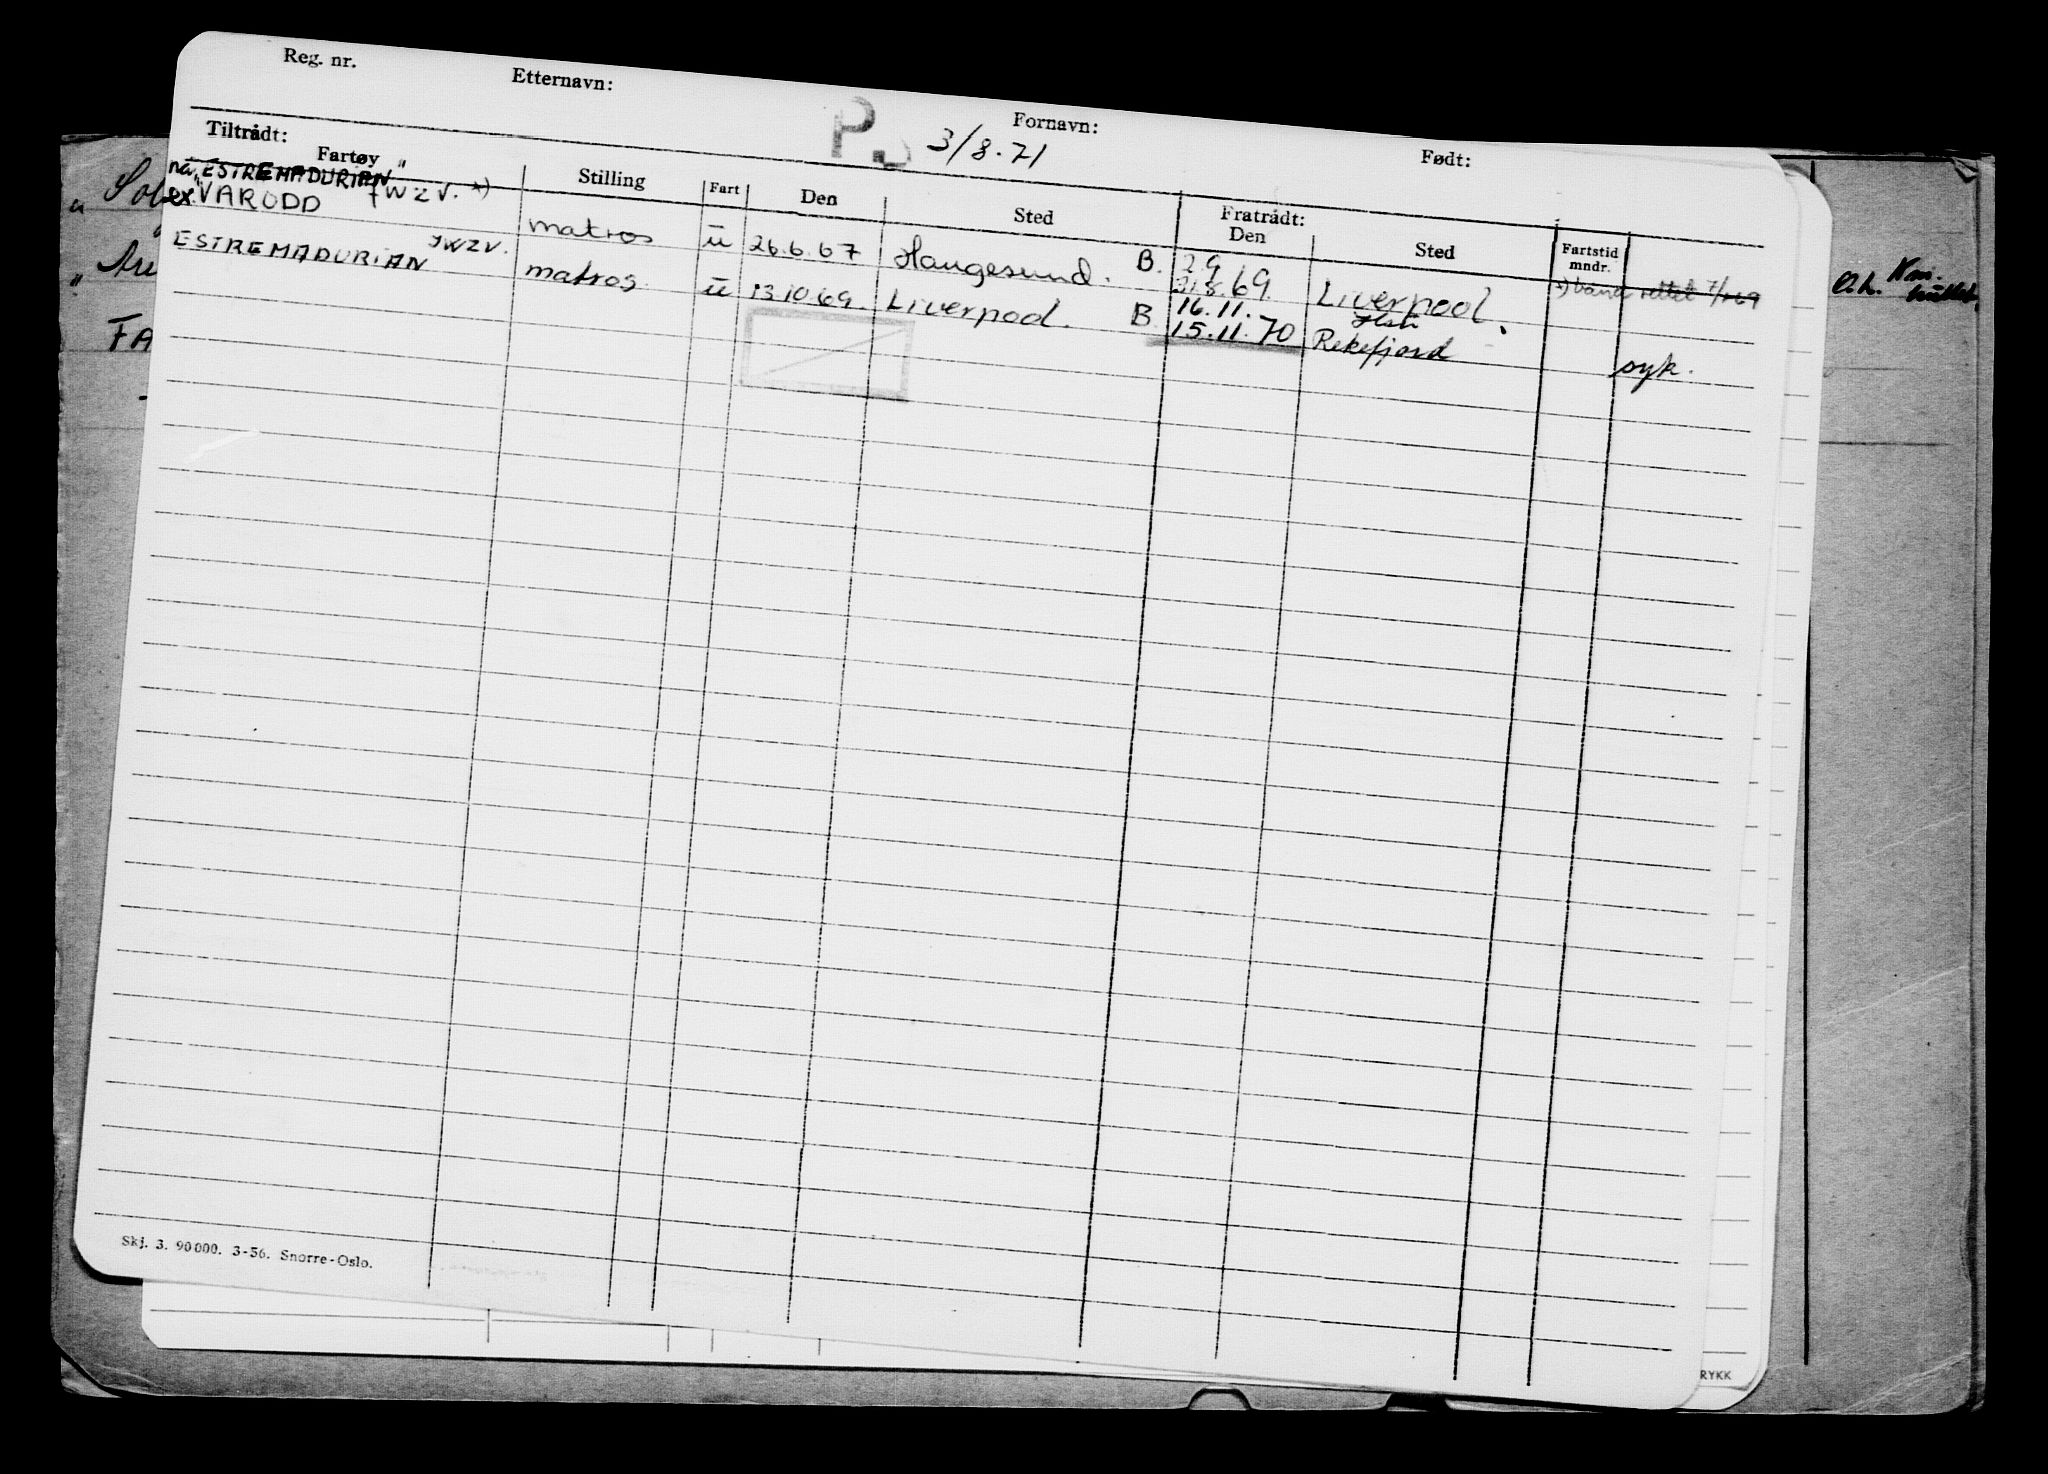 Reg. nr. Etternavn: Fornavn: Født:
P. 3/8.71
Tiltrådt: Fratrådt:
Fartøy Stilling Fart Den Sted Den Sted Fartstid mndr.
nå "ESTREMADURIAN"
ex VARODD JWZV. *) matros ü 26.6.67 Haugesund. B. 2.9 31.8.69. Liverpool
ESTREMADURIAN JWZV. matros ü 13.10.69. Liverpool. B 16.11. 15.11.70 Rekefjord syk.
Skj. 3. 90000. 3-56. Snorre-Oslo.
RYKK
FA